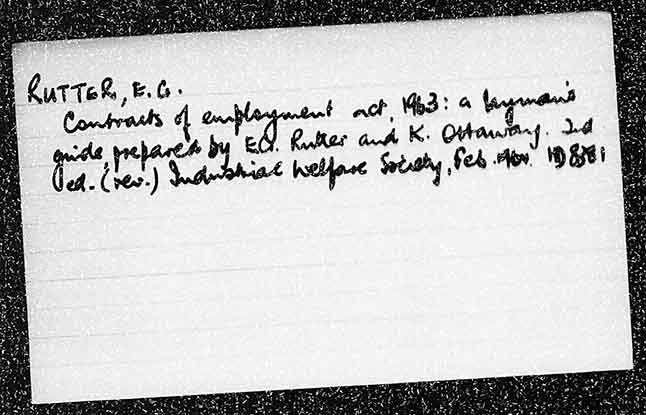 RUTTER, E.G.
Contracts of employment act, 1963: a layman's
guide, prepared by E.G. Rutter and K. Ottaway. 2nd
ed. (rev.) Industrial Welfare Society, Feb.